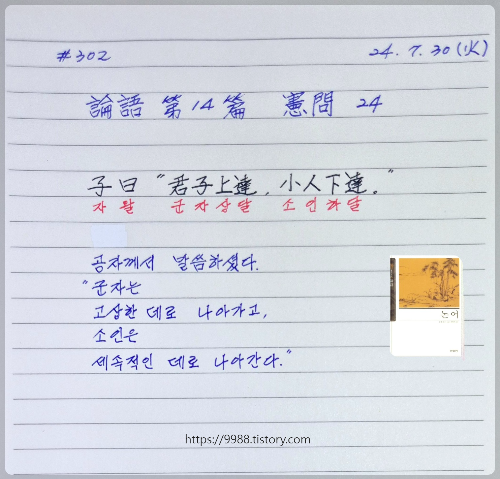 #302
24. 7. 30 (火)
論語 第14篇 憲問 24
子曰 "君子上達, 小人下達."
자왈 군자상달 소인하달
공자께서 말씀하셨다.
"군자는
고상한 데로 나아가고,
소인은
세속적인 데로 나아간다."
논어
https://9988.tistory.com